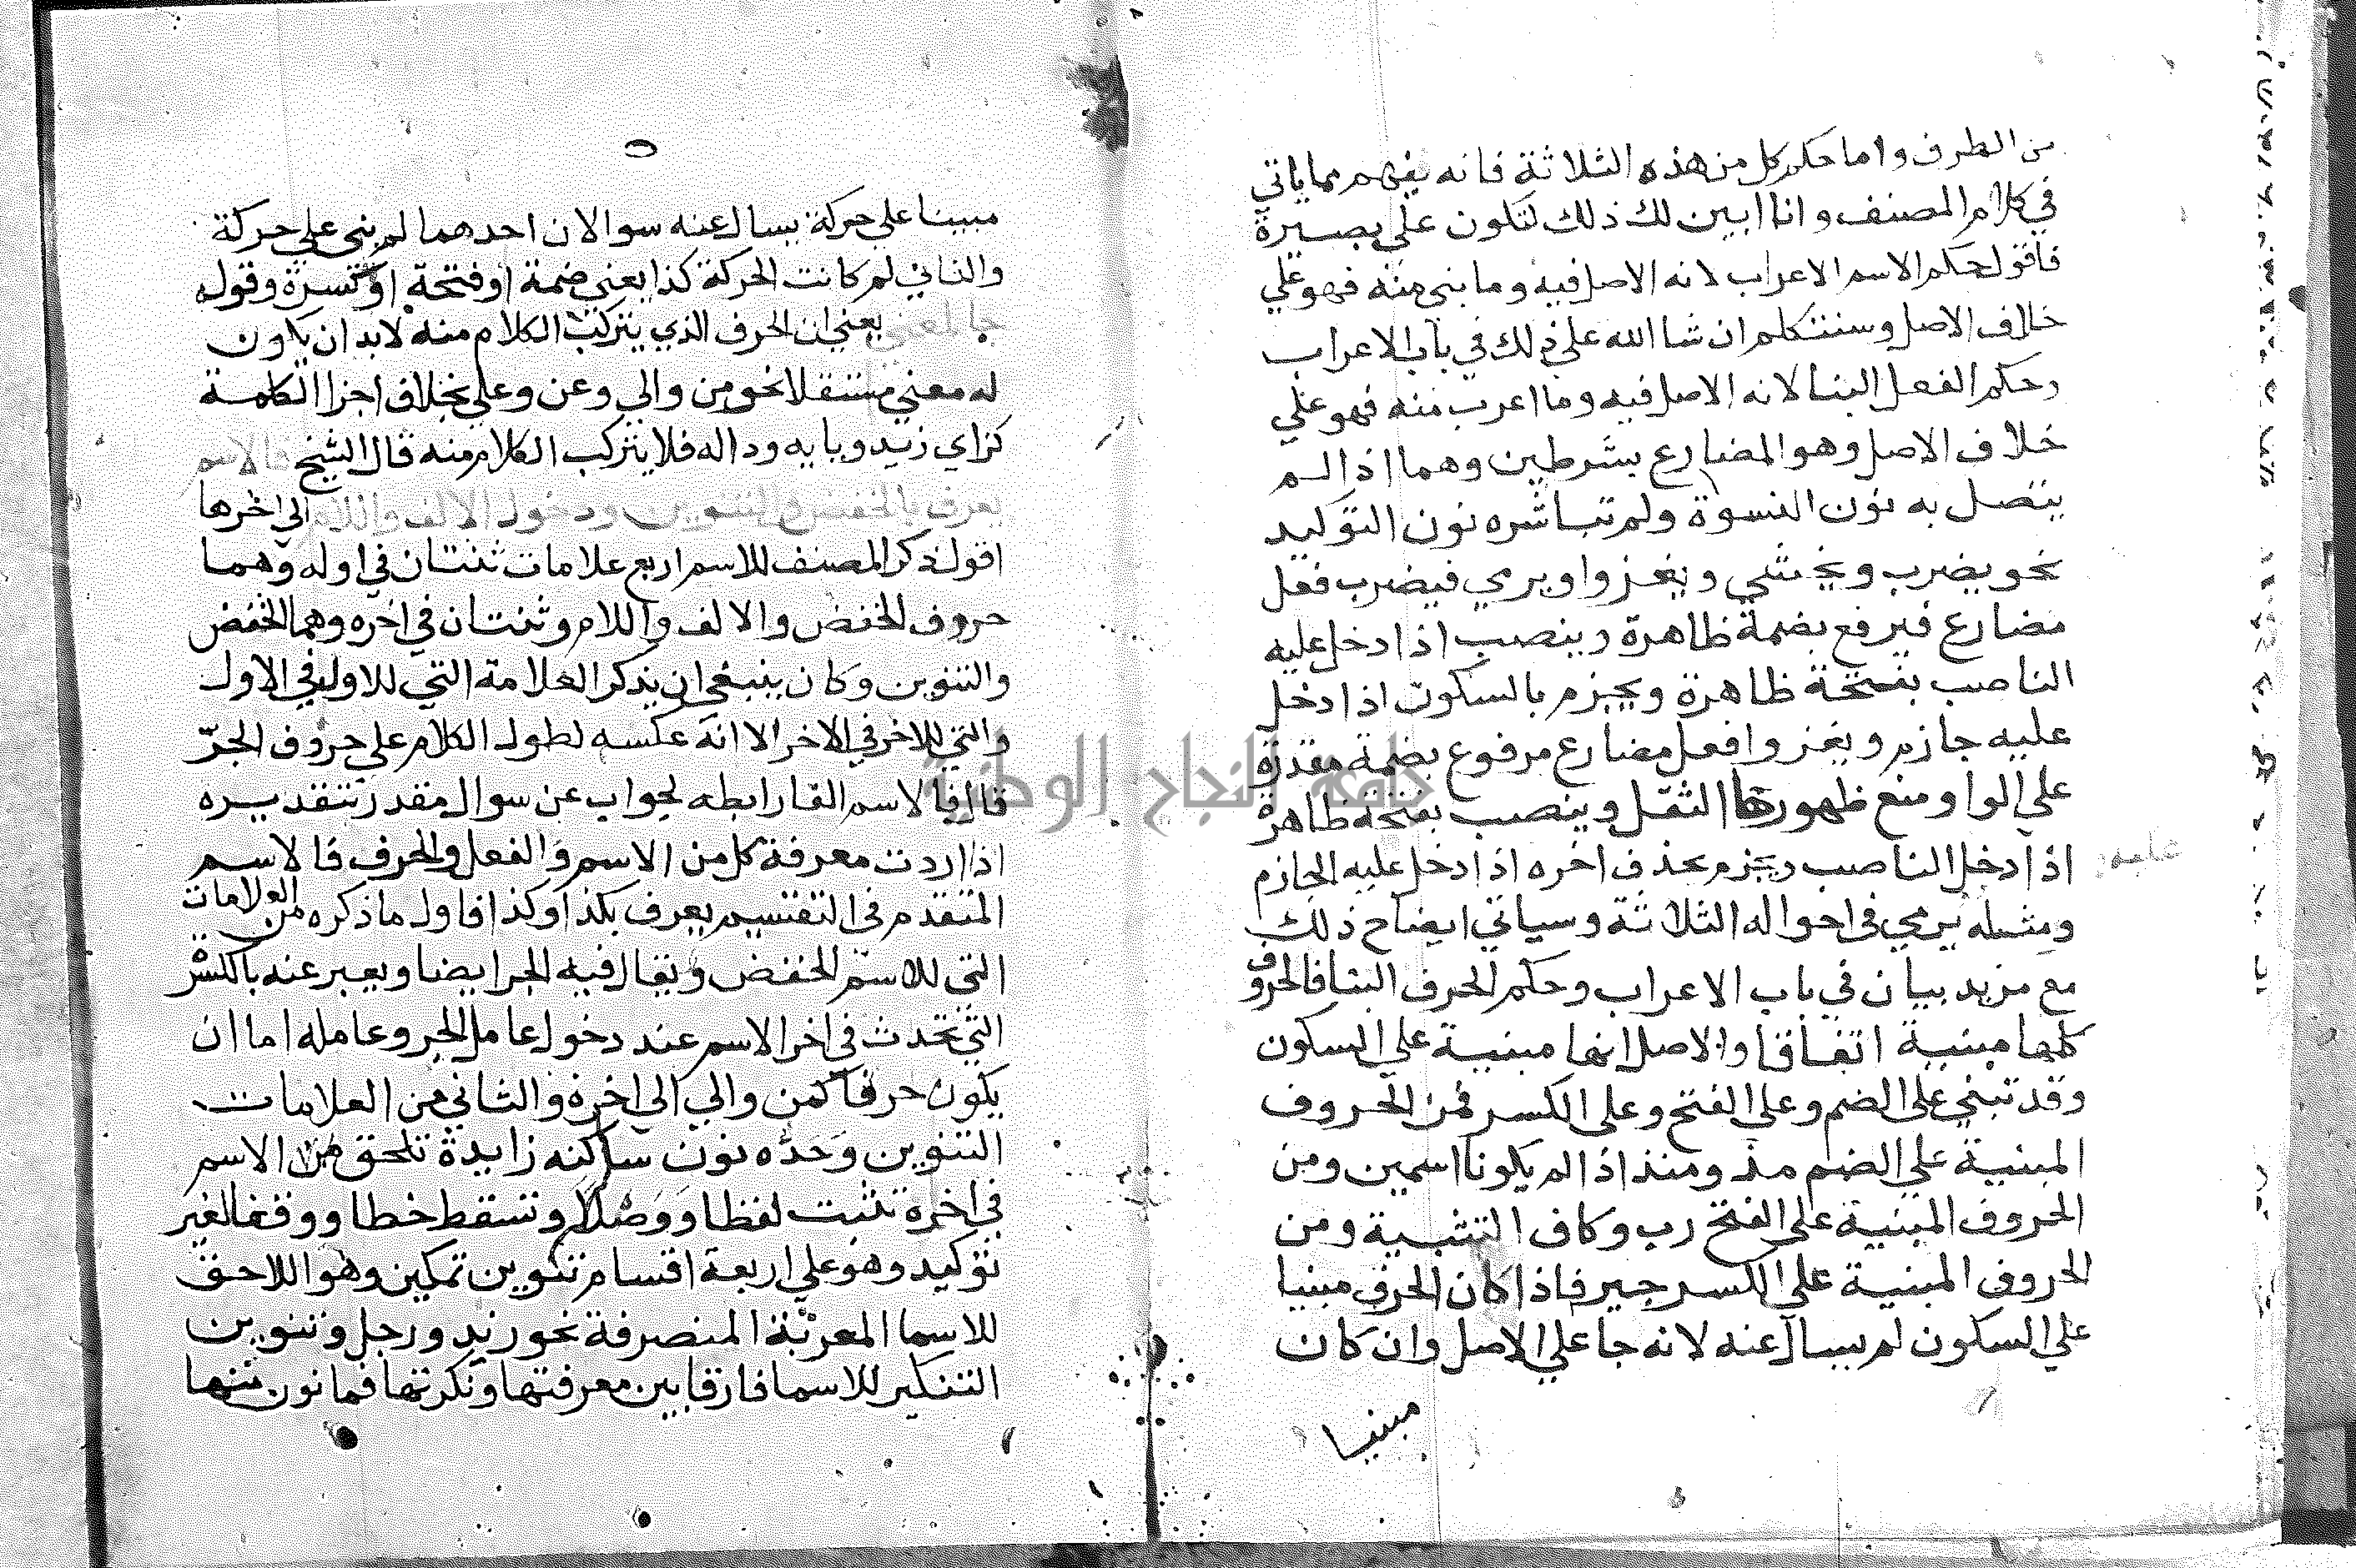 من الطرف واما حكم كل من هذه الثلاثة فانه يفهم مما ياتي
في كلام المصنف وانا ابين لك ذلك لتكون علي بصيرة
فاقول حكم الاسم الاعراب لانه الاصل فيه وما بني منه فهو علي
خلاف الاصل وسنتكلم ان شا الله علي ذلك في باب الاعراب
وحكم الفعل البنا لانه الاصل فيه وما اعرب منه فهو علي
خلاف الاصل وهو المضارع بشرطين وهما اذا لم
يتصل به نون النسوة ولم تباشره نون التوكيد
نحو يضرب ويخشي ويغزوا ويرمي فيضرب فعل
مضارع فيرفع بضمة ظاهرة وينصب اذا دخل عليه
الناصب بفتحة ظاهرة ويجزم بالسكون اذا دخل
عليه جازم ويغزوا فعل مضارع مرفوع بضمة مقدرة
علي الواو منع ظهورها الثقل وينصب بفتحة ظاهرة
اذا دخل الناصب ويجزم بحذف اخره اذا دخل عليه الجازم
عليه
ومثله يرمي في احواله الثلاثة وسياتي ايضاح ذلك
مع مزيد بيان في باب الاعراب وحكم الحرف البنا فالحروف
كلها مبنية اتفاقا والاصل انها مبنية علي السكون
وقد تبني علي الضم وعلي الفتح وعلي الكسر فمن الحروف
المبنية علي الضم مذ ومنذ اذا لم يكونا اسمين ومن
الحروف المبنية علي الفتح رب وكاف التشبية ومن
الحروف المبنية علي الكسر جير فاذا كان الحرف مبنيا
علي السكون لم يسال عنه لانه جا علي الاصل وان كان
مبنيا
٥
مبينا علي حركة يسال عنه سوالان احدهما لم بني علي حركة
والثاني لم كانت الحركة كذا يعني ضمة او فتحة او كسرة وقوله
جا لمعني يعني ان الحرف الذي يتركب الكلام منه لابد ان يكون
له معني مستقلا نحو من والي وعن وعلي بخلاف اجزا الكلمة
كزاي زيد وبايه وداله فلا يتركب الكلام منه قال الشيخ فالاسم
يعرف بالخفض والتنوين ودخول الالف واللام الي اخرها
اقول ذكر المصنف للاسم اربع علامات ثنتان في اوله وهما
حروف الخفض والالف واللام وثنتان في اخره وهما الخفض
والتنوين وكان ينبغي ان يذكر العلامة التي للاول في الاول
والتي للاخر في الاخر الا انه عكسه لطول الكلام علي حروف الجر
قال فالاسم الفا رابطه لجواب عن سوال مقدر تقديره
اذا اردت معرفة كل من الاسم والفعل والحرف فالاسم
المتقدم في التقسيم يعرف بكذا وكذا فاول ما ذكره من العلامات
التي للاسم الخفض ويقال فيه الجر ايضا ويعبر عنه بالكسر
التي تحدث في اخر الاسم عند دخول عامل الجر وعامله اما ان
يكون حرفا كمن والي الي اخره والثاني من العلامات
التنوين وحده نون ساكنه زايدة تلحق الاسم
في اخره تثبت لفظا ووصلا وتسقط خطا ووقفا لغير
توكيد وهو علي اربعة اقسام تنوين تمكين وهو اللاحق
للاسما المعربة المنصرفة نحو زيد ورجل وتنوين
التنكير للاسما فارقا بين معرفتها ونكرتها فما نون منها
جامعة النجاح الوطنية